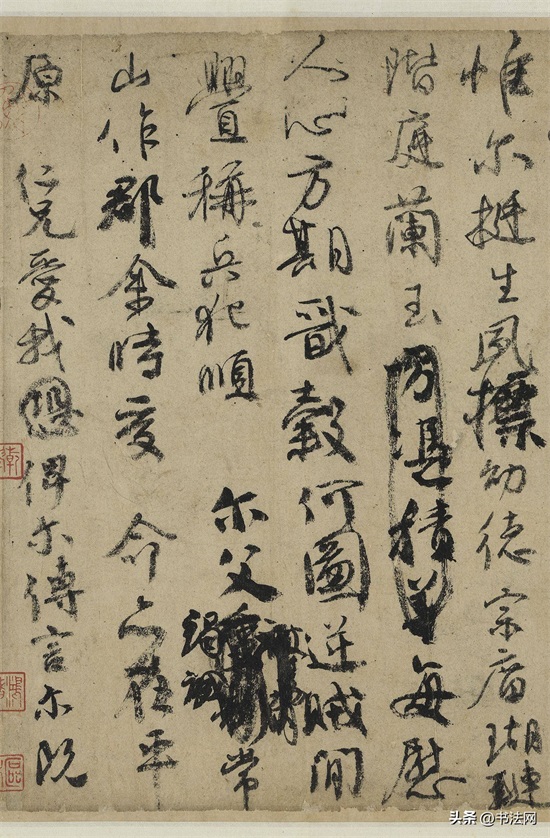 惟尔挺生夙標幼德宗廟瑚璉
階庭蘭玉方憑積善每慰
人心方期戩穀何圖逆賊間
釁稱兵犯順 尔父竭誠常
山作郡余時受命亦在平
原仁兄愛我恐俾尔傳言尔既
头条 @书法网